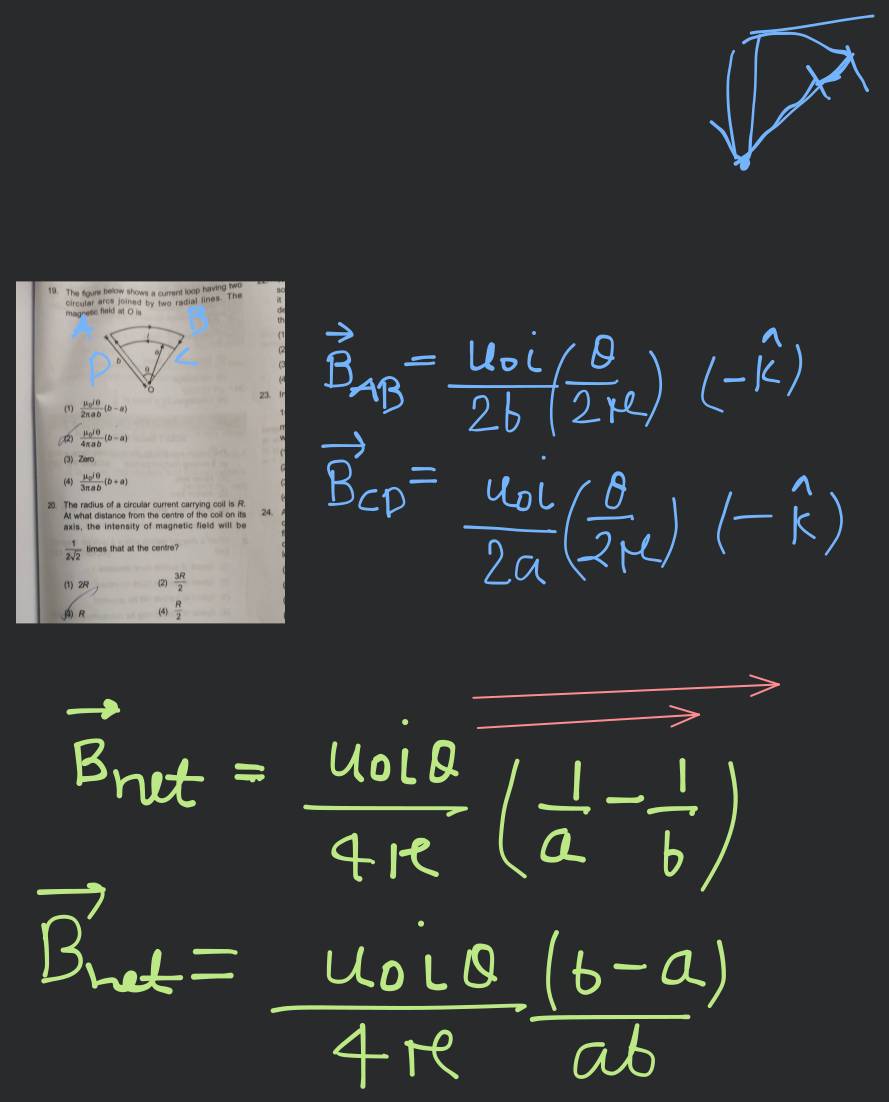 19. The figure below shows a current loop having two
circular arcs joined by two radial lines. The
magnetic field at O is
A B
D C
b a
θ
O
(1) μ₀iθ/2πab (b – a)
(2) μ₀iθ/4πab (b – a)
(3) Zero
(4) μ₀iθ/3πab (b + a)
20. The radius of a circular current carrying coil is R.
At what distance from the centre of the coil on its
axis, the intensity of magnetic field will be
1/2√2 times that at the centre?
(1) 2R (2) 3R/2
(3) R (4) R/2
23.
24.
B⃗AB = μ₀i/2b (θ/2π) (-k̂)
B⃗CD = μ₀i/2a (θ/2π) (-k̂)
B⃗net = μ₀iθ/4π (1/a - 1/b)
B⃗net = μ₀iθ/4π (b-a)/ab